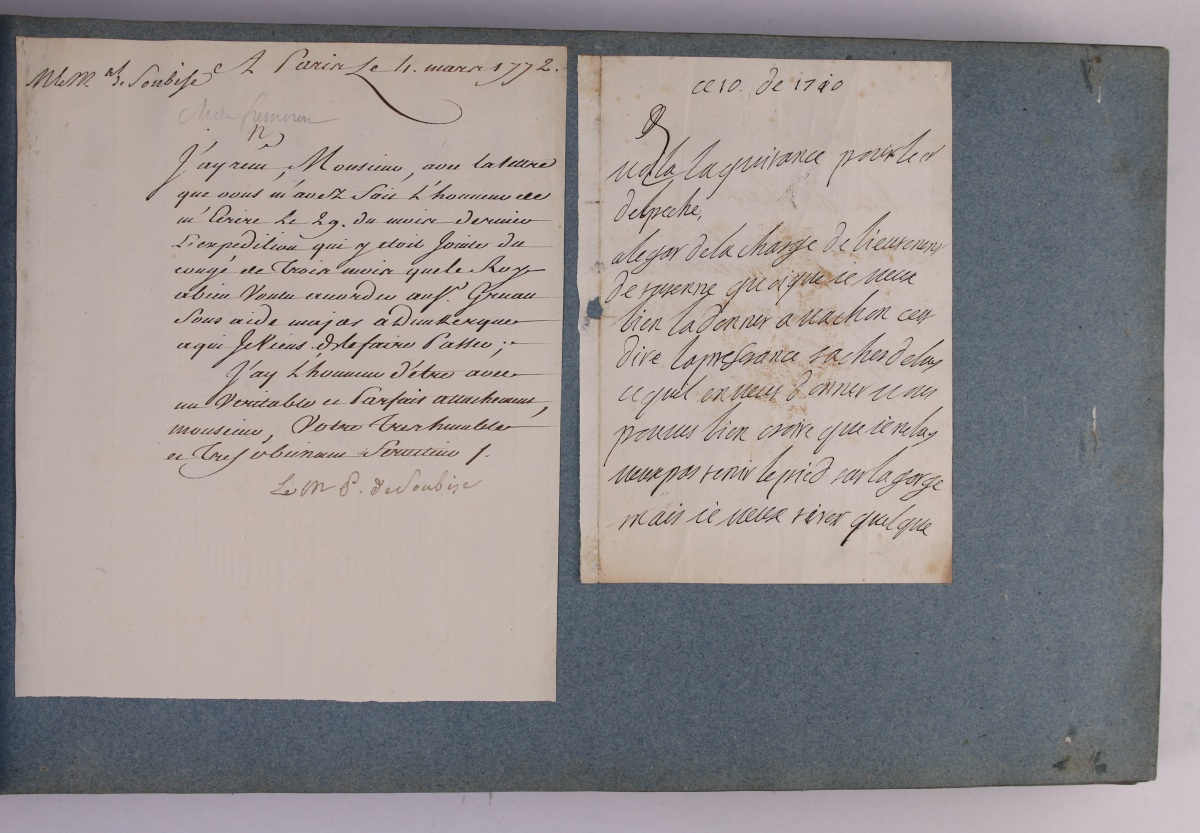 M. le M.al de Soubise
A Paris Le 4. mars 1772.
J'ay reçu, Monsieur, avec la lettre
que vous m'avez fait L'honneur de
m'Ecrire Le 29. du mois dernier
L'expedition qui y etoit Jointe du
congé de trois mois que le Roy
a bien voulu accorder au S.
Sous aide major a Dunkerque
a qui Je viens de le faire Passer;
J'ay L'honneur d'être avec
un Veritable et Parfait attachement,
monsieur, Votre tres humble
et Tres obeissant Serviteur /.
Le M P. de Soubise
ce 10. de 1710
voila la quitance pour le
delpeche,
alegar de la charge de lieutenent
de quoi que ie veux
bien la donner a vachon cest
dire la preferance saches de luy
ce quil en veut donner vous
pouves bien croire que ie ne luy
veux pas tenir le pied sur la gorge
mais ie veux tirer quelque